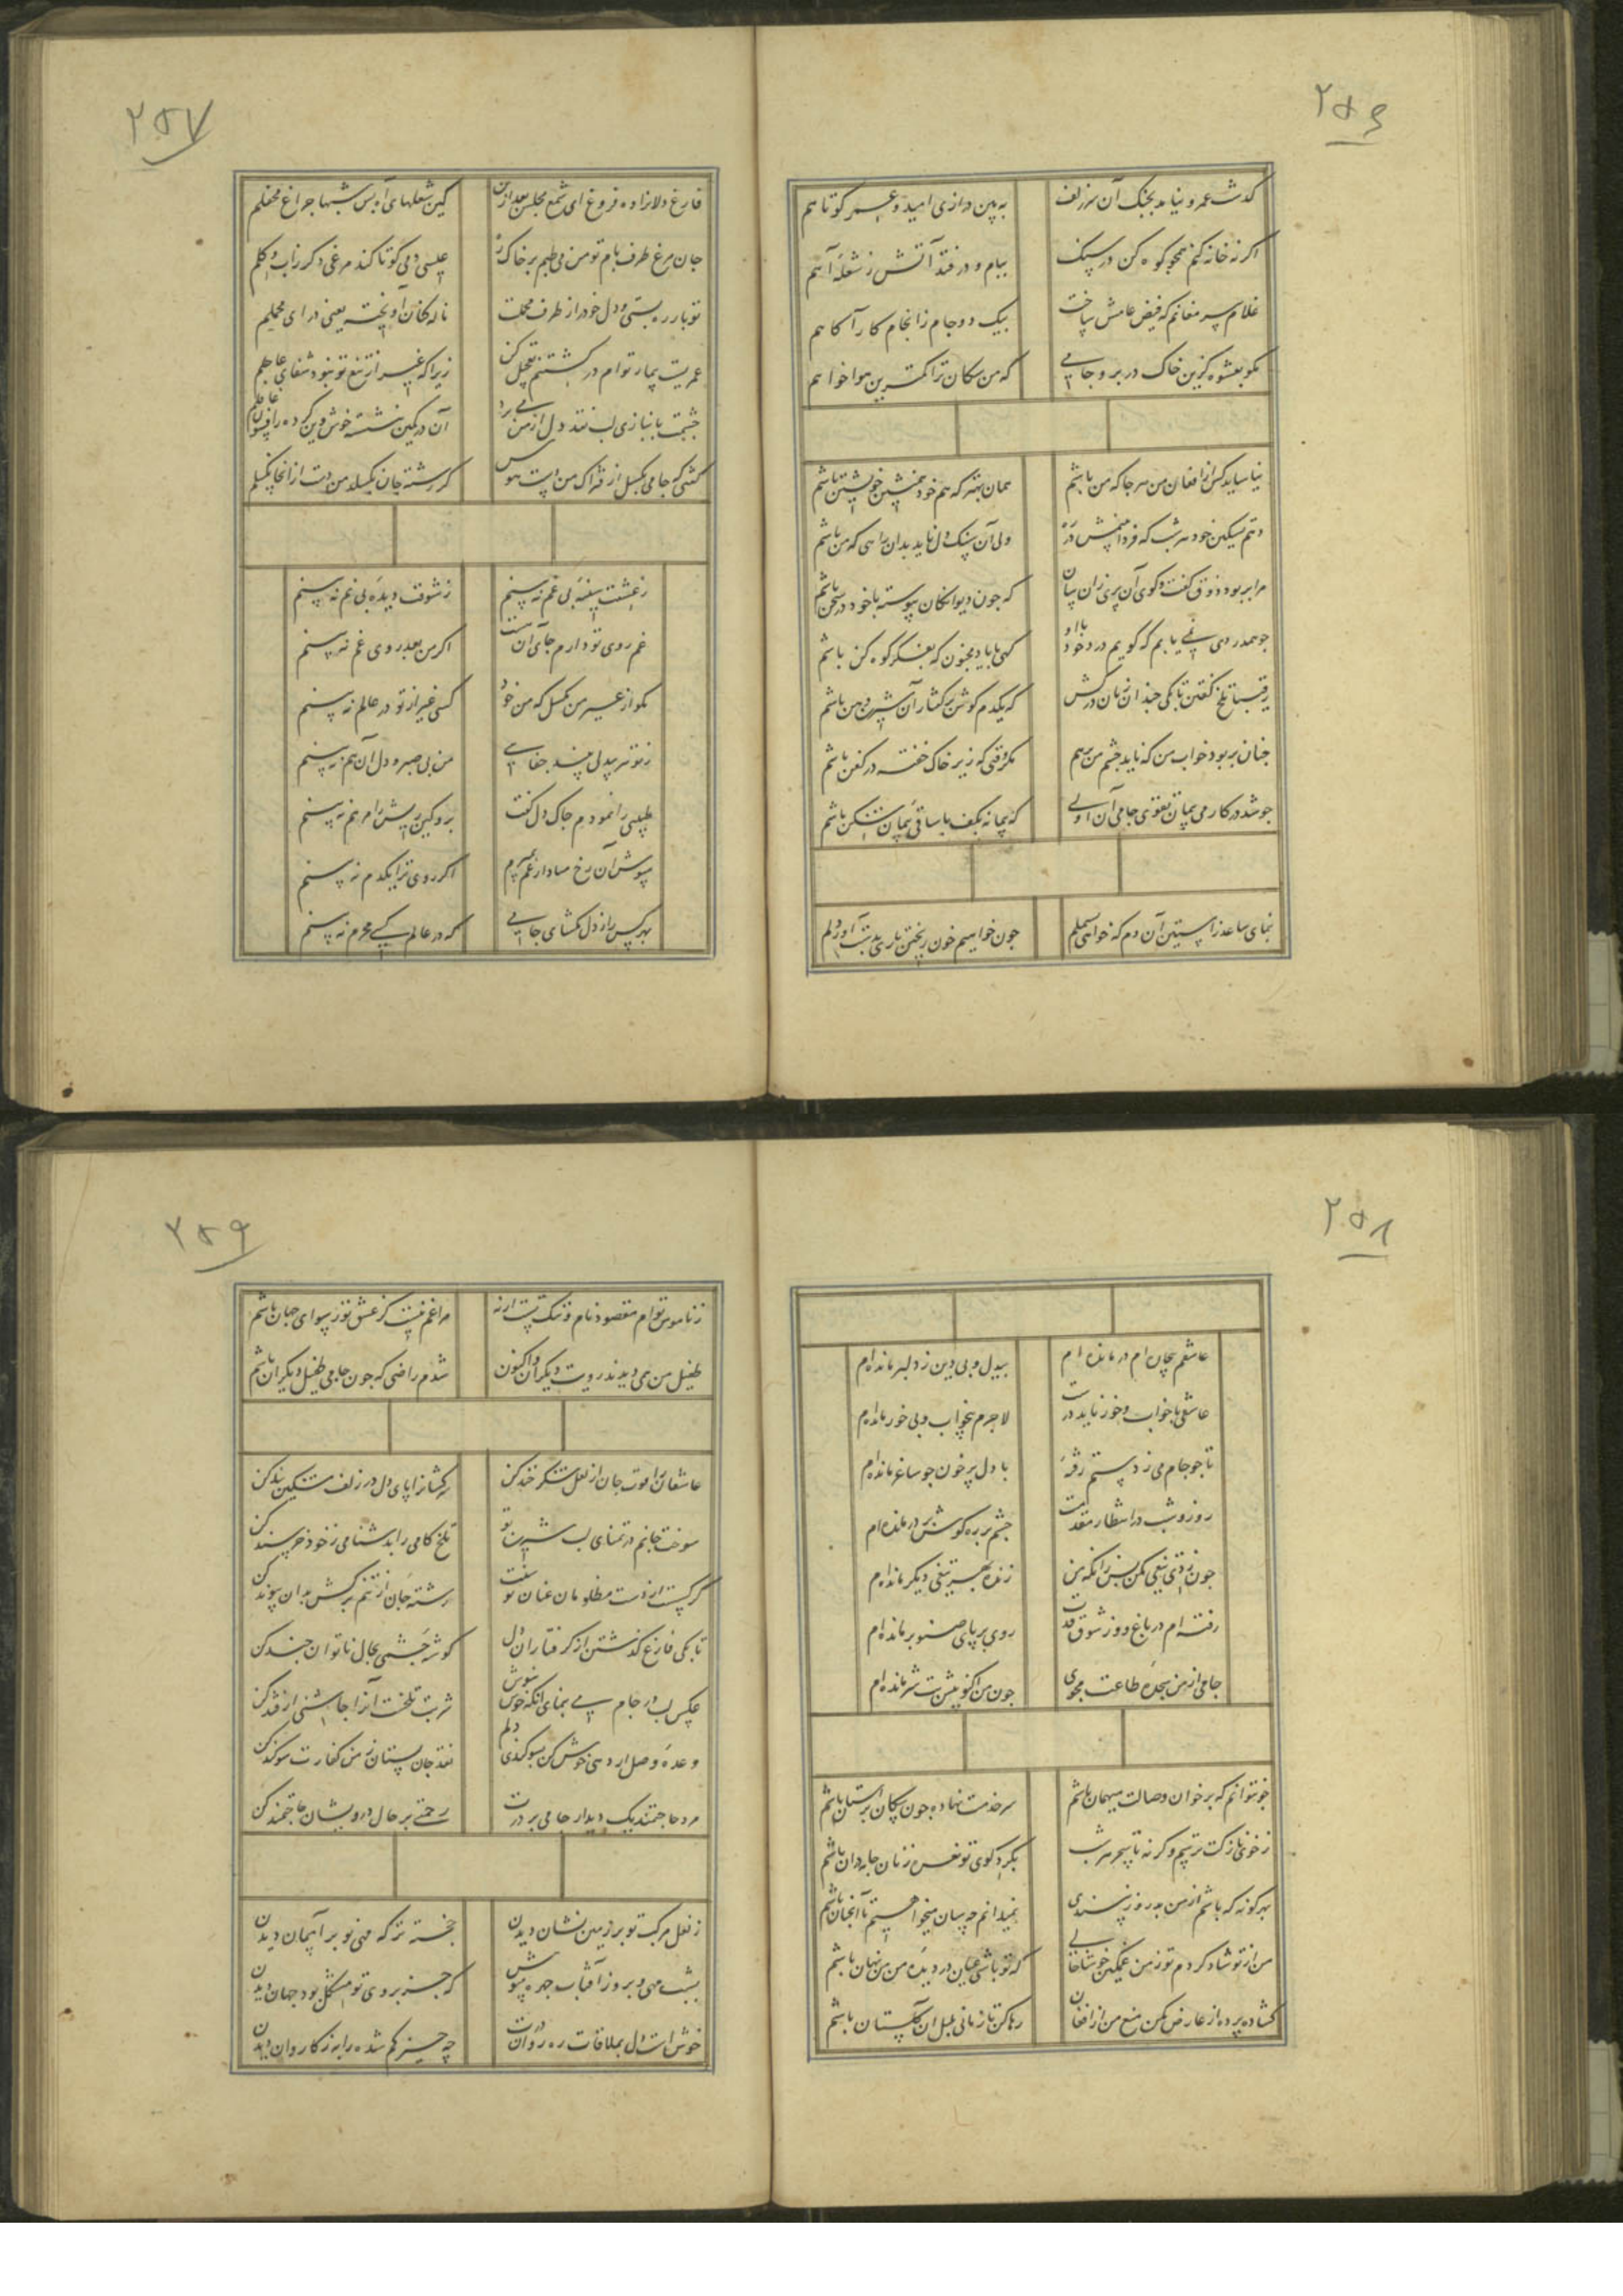 ۲۵۶
گذشت عمر و نیامد بچنگ آن سر زلف
به بین درازی امید و عمر کوتاهم
اگر نه خانه کنم همچو کوه کن در سنگ
ببام و در فتد آتش ز شعله آهم
غلام پیر مغانم که فیض عامش ساخت
بیک دو جام ز انجام کار آگاهم
مگو بعشوه کزین خاک در برو جامی
که من سگان ترا کمترین هواخواهم
نیاساید کس از افغان من هر جا که من باشم
همان بهتر که هم خود همنشین خویشتن باشم
دهم تسکین خود هر شب که فردا بینمش در ره
ولی آن سنگ دل ناید بدان راهی که من باشم
مرا بر بود ذوق گفت و گوی آن پری زان سان
که چون دیوانگان پیوسته با خود در سخن باشم
چو همدردی نمی یابم که گویم درد خود با او
گهی با یاد مجنون گه بفکر کوه کن باشم
رقیبا تلخ گفتن تا بکی چندان زبان درکش
که یکدم گوش بر گفتار آن شیرین دهن باشم
چنان بر بود خواب من که ناید چشم من برهم
مگر وقتی که زیر خاک خفته در کفن باشم
چو شد در کار می پیمان تقوی جامی آن اولی
که پیمانه بکف با ساقی پیمان شکن باشم
بنمای ساعد ز آستین آن دم که خواهی بسملم
چون خواهیم خون ریختن باری بدست آور دلم
۲۵۷
فارغ دلانرا ده فروغ ای شمع مجلس بعد ازین
کین شعلهای آه بس شبها چراغ محفلم
جان مرغ طرف بام تو من می طپم بر خاک ره
عیسی دمی کو تا کند مرغی دگر ز آب و گلم
تو بار ره بستی و دل خود را ز طرف محملت
ناله کنان آویخته یعنی درای محملم
عمریست بیمار توام در کشتنم تعجیل کن
زیرا که غیر از تیغ تو نبود شفای عاجلم
چشمت بانبازی لب نقد دل از من می برد
آن در کمین بنشسته خوش وین کرده ز افسون غافلم
گفتی که جامی بگسل از فتراک من دست هوس
گر رشته جان بگسلد من دست از آنجا نگسلم
ز عشقت سینه بی غم نه بینم
ز شوقت دیده بی نم نه بینم
غم روی تو دارم جای آن هست
اگر من بعد روی غم نه بینم
مگو از غیر من بگسل که من خود
کسی غیر از تو در عالم نه بینم
ز تو تر بیدلی بیند جفایی
من بی صبر و دل آن هم نه بینم
طبیبی را نمودم چاک دل گفت
برو کین ریش را مرهم نه بینم
مپوش آن رخ مبادا از غم بمیرم
اگر روی ترا یکدم نه بینم
بهر کس راز دل مگشای جامی
که در عالم کسی محرم نه بینم
۲۵۸
عاشقم بیچاره ام درمانده ام
بیدل و بی دین ز دلبر مانده ام
عاشقی با خواب و خور ناید درست
لاجرم بیخواب و بی خور مانده ام
تا چو جام می ز دستم رفته
با دل پر خون چو ساغر مانده ام
روز و شب در انتظار مقدمت
چشم بر ره گوش بر در مانده ام
چون زدی تیغی مکن بس زانکه من
زنده بهر تیغ دیگر مانده ام
رفته ام در باغ و وز شوق قدت
روی بر پای صنوبر مانده ام
جامی از من سجده طاعت مجوی
چون من اکنون پیش بت سر مانده ام
چو نتوانم که بر خوان وصالت میهمان باشم
سر خدمت نهاده چون سگان بر آستان باشم
ز خوی نازکت ترسم وگرنه تا سحر هر شب
بگرد کوی تو نعره زنان جامه دران باشم
بهر گونه که باشم از من بد روز نپسندی
نمیدانم چه سان میخواهیم تا آنچنان باشم
من از تو شاد گردم تو ز من غمگین خوشا حالی
که تو باشی عیان در دیده من من نهان باشم
گشاده پرده از عارض مکن منع من از افغان
رها کن تا زمانی بلبل آن گلستان باشم
۲۵۹
ز ناموس توام مقصود نام و ننگ تست ار نه
مرا غم نیست کز عشق تو رسوای جهان باشم
طفیل من همی دیدند رویت دیگران و اکنون
شدم راضی که چون جامی طفیل دیگران باشم
عاشقان را قوت جان از لعل شکر خند کن
سرکشانرا پای دل در زلف مشکین بند کن
سوخت جانم در تمنای لب شیرین تو
تلخ کامی را بدشنامی ز خود خرسند کن
گر گسست از دست مظلومان عنان تو سنت
رشته جان از تنم برکش بدان پیوند کن
تا بکی فارغ گذشتن از گرفتاران دل
گوشه چشمی بحال ناتوان چند کن
عکس لب در جام می بنمای آنگه خوش بنوش
شربت تلخست آنرا چاشنی از قند کن
وعده وصل ار دهی خوش کن بسوگندی دلم
نقد جان بستان ز من کفارت سوگند کن
مرد حاجتمند یک دیدار جامی بر درت
رحمتی بر حال درویشان حاجتمند کن
ز نعل مرکب تو بر زمین نشان دیدن
خجسته تر که مه نو بر آسمان دیدن
بشب مهی و بروز آفتاب چهره مپوش
که جز بروی تو مشکل بود جهان دیدن
خوش است دل بملاقات ره روان درت
چه چیز گم شده را به ز کاروان دیدن